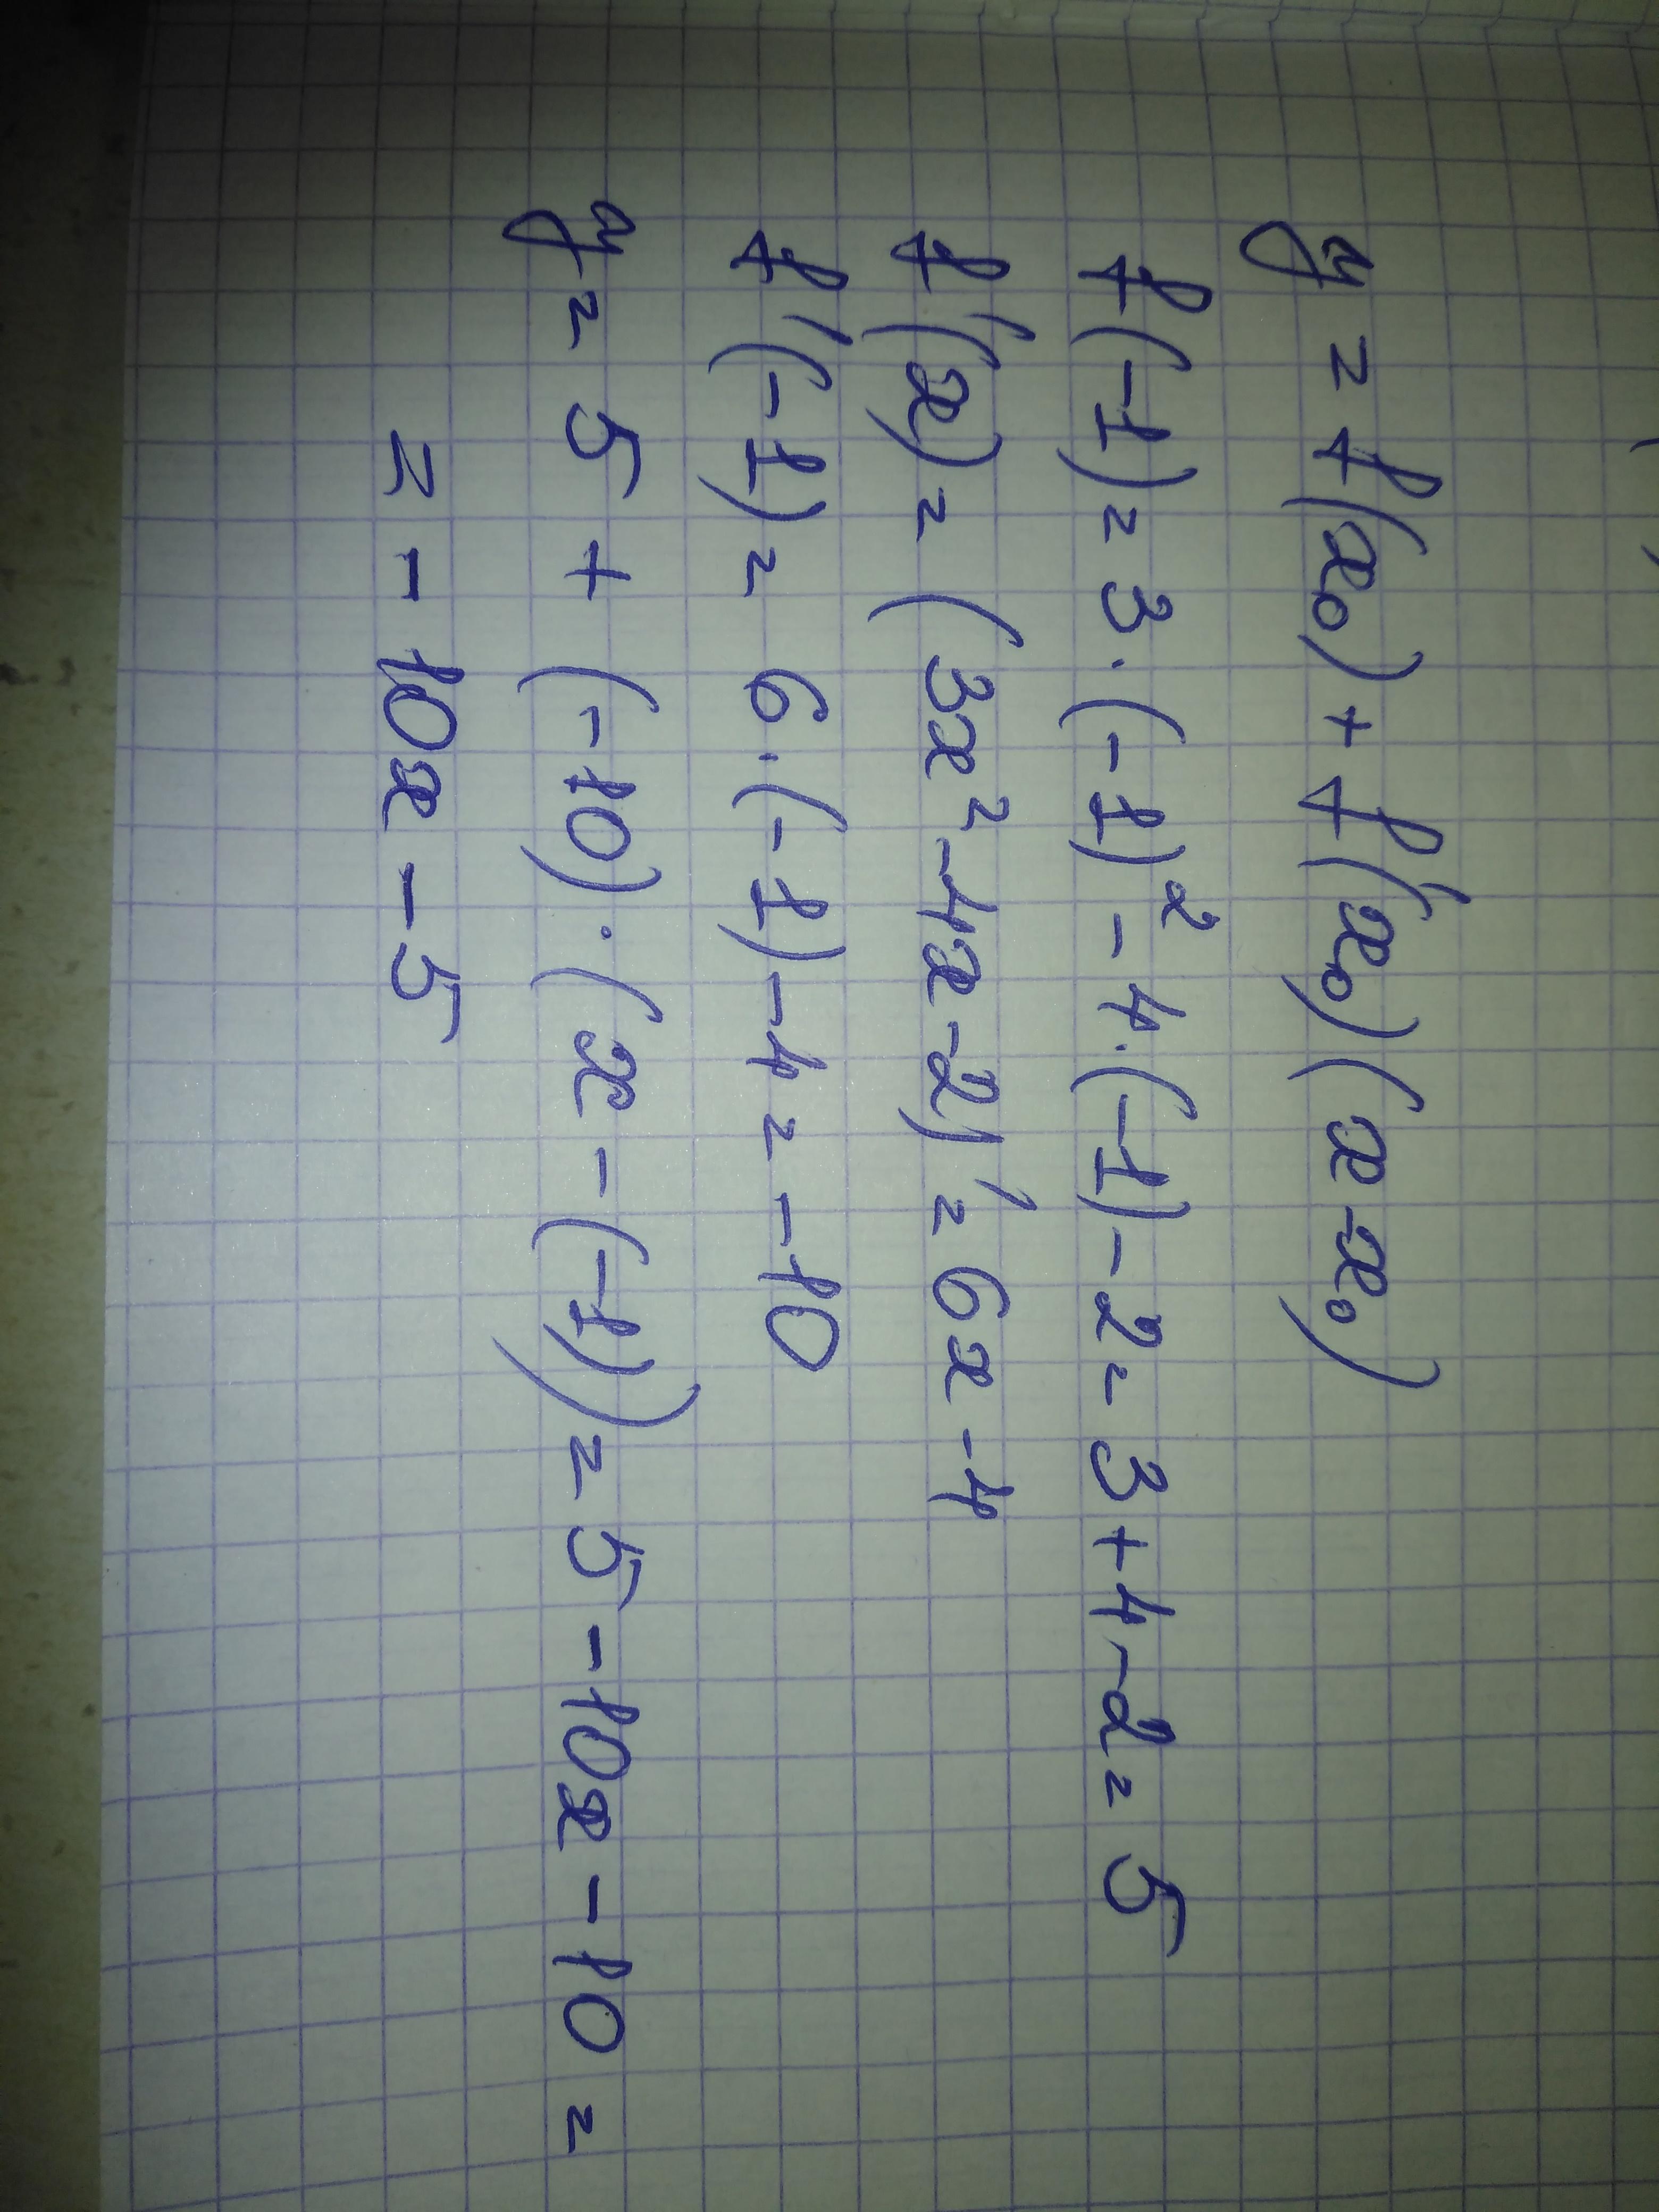 y = f(x₀) + f'(x₀)(x - x₀)
f(-1) = 3·(-1)² - 4·(-1) - 2 = 3 + 4 - 2 = 5
f'(x) = (3x² - 4x - 2)' = 6x - 4
f'(-1) = 6·(-1) - 4 = -10
y = 5 + (-10)·(x - (-1)) = 5 - 10x - 10 =
= -10x - 5